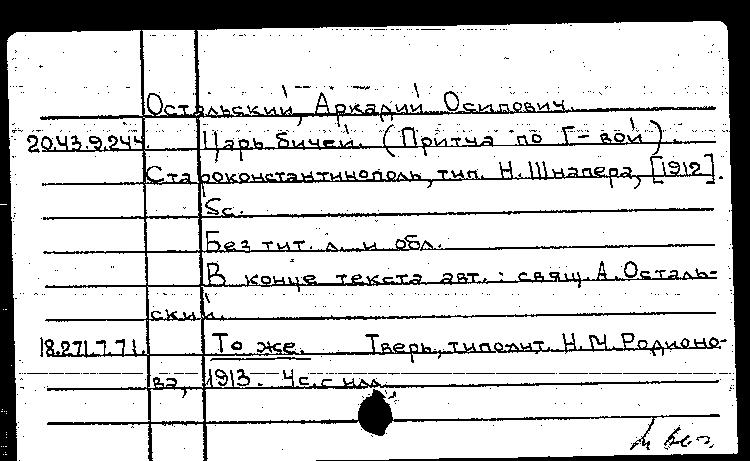 Остальский, Аркадий Осипович
20.43.9.244. Царь бичей. (Притча по Г-вой).
Староконстантинополь, тип. Н. Шнапера, [1912].
8с.
Без тит. л. и обл.
В конце текста авт.: свящ. А. Осталь-
ский.
18.271.7.71. То же. Тверь, типолит. Н.М. Родионо-
ва, 1913. 4с. с илл.